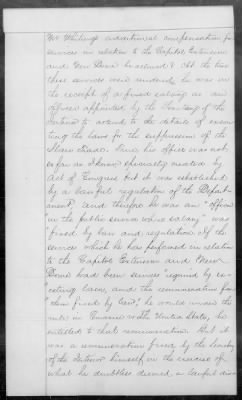 Mr. Whiting's additional compensation for
services in relation to the Capitol Extension
and New Dome be allowed? At the time
these services were rendered, he was in
the receipt of a fixed salary as an
officer appointed by the Secretary of the
Interior to attend to the details of execu-
ting the laws for the suppression of the
Slave trade. Since his office was not
so far as I know specially created by
Act of Congress but it was established
by a lawful regulation of the Depart-
ment and therefore he was an "officer
in the public service whose salary" was
"fixed by law and regulation. If the
services which he has performed in relation
to the Capitol Extension and New
Dome had been services required by ex-
isting laws, and the remuneration for
them fixed by law", he would under the
rule in Converse vs the United States, be
entitled to that remuneration. But it
was a remuneration fixed by the Secretary
of the Interior himself in the exercise of
what he doubtless deemed, a lawful discre